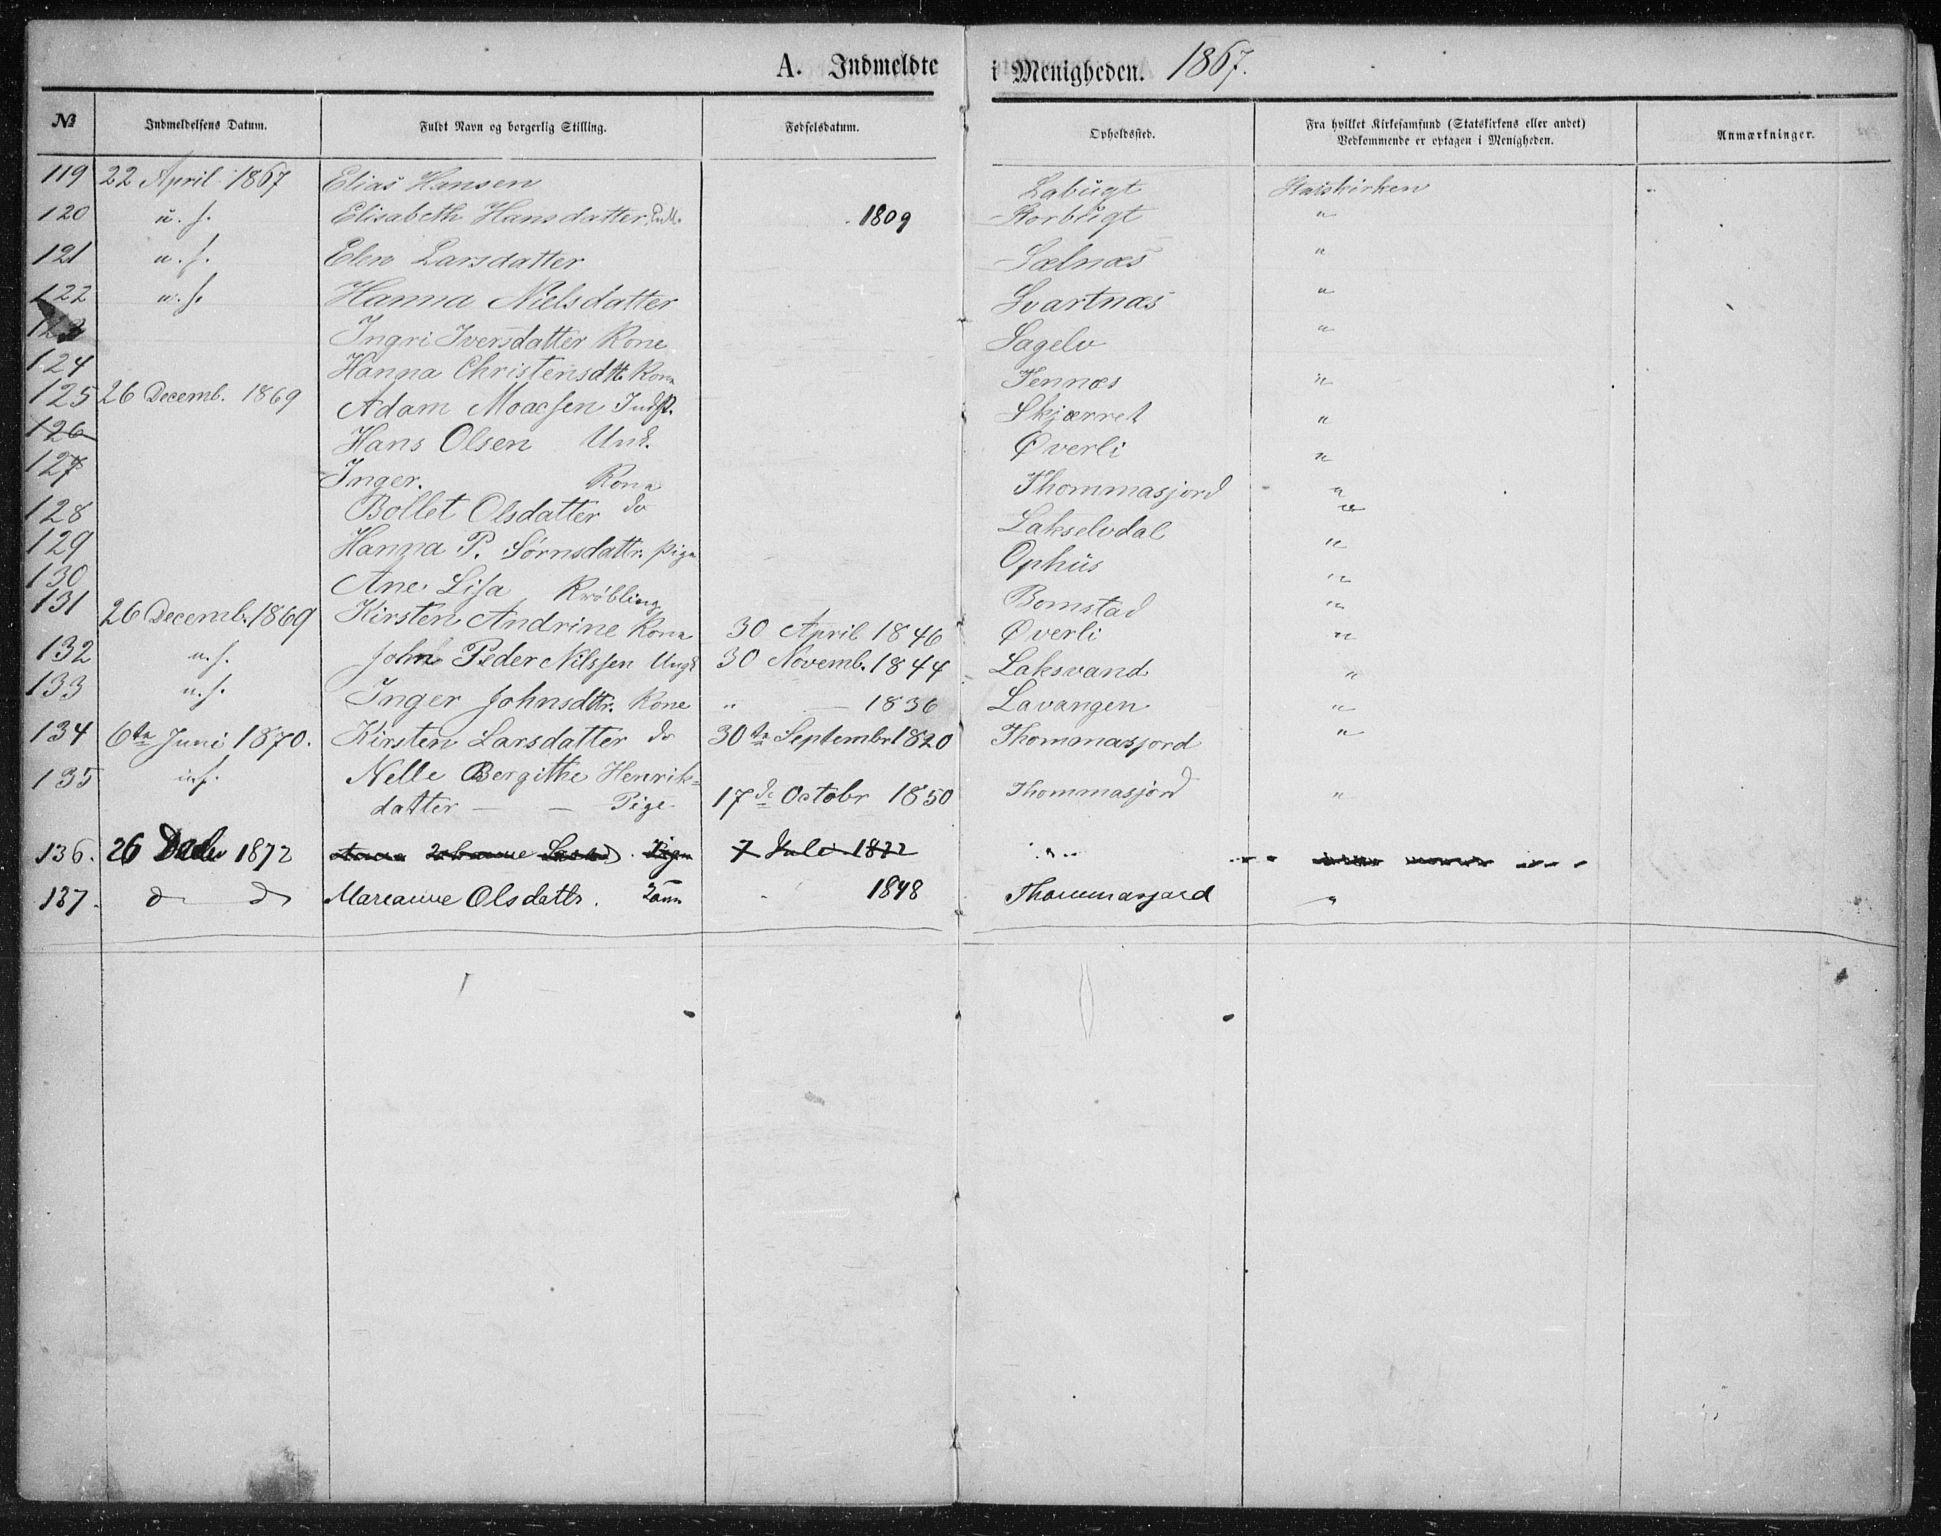 A. Indmeldte i Menigheden. 1867.
№ Indmeldelsens Datum. Fuldt Navn og borgerlig Stilling. Fødselsdatum. Opholdssted. Fra hvilket Kirkesamfund (Statskirkens eller andet) Vedkommende er optagen i Menigheden. Anmærkninger.
119 22 April 1867 Elias Hansen Labugt Statskirken
120 u. s. Elisabeth Hansdatter 1809 Storbugt "
121 u. s. Elen Larsdatter Sælnæs "
122 u. s. Hanna Nielsdatter Svartnæs "
123 Ingri Iversdatter Kone Sagelv "
124 Hanna Christensdtt Kone Tennæs "
125 26 Decemb. 1869 Adam Moacsen Indst. Skjærret "
126 Hans Olsen Unk. Øverli "
127 Inger. Kone Thommasjord "
128 Bollet Olsdatter do Lakselvdal "
129 Hanna P. Sørnsdattr. Pige Ophüs "
130 Ane Lisa Krøbling Bomstad "
131 26 Decemb. 1869 Kirsten Andrine Kone 30 April 1846 Øverli "
132 u. s. John Peder Nilssen Ungk 30 Novemb. 1844 Laksvand "
133 u. s. Inger Johnsdttr. Kone " — 1836 Lavangen "
134 6te Juni 1870. Kirsten Larsdatter do 30te Septembr 1820 Thommasjord "
135 u. s. Nelle Bergithe Henriks=
datter — — Pige 17de Octobr 1850 Thommasjord "
136. 26 1872 Johanne Pige 7 Juli 1822 " "
137. d d Marianne Olsdattr. 1848 Thommasjord "